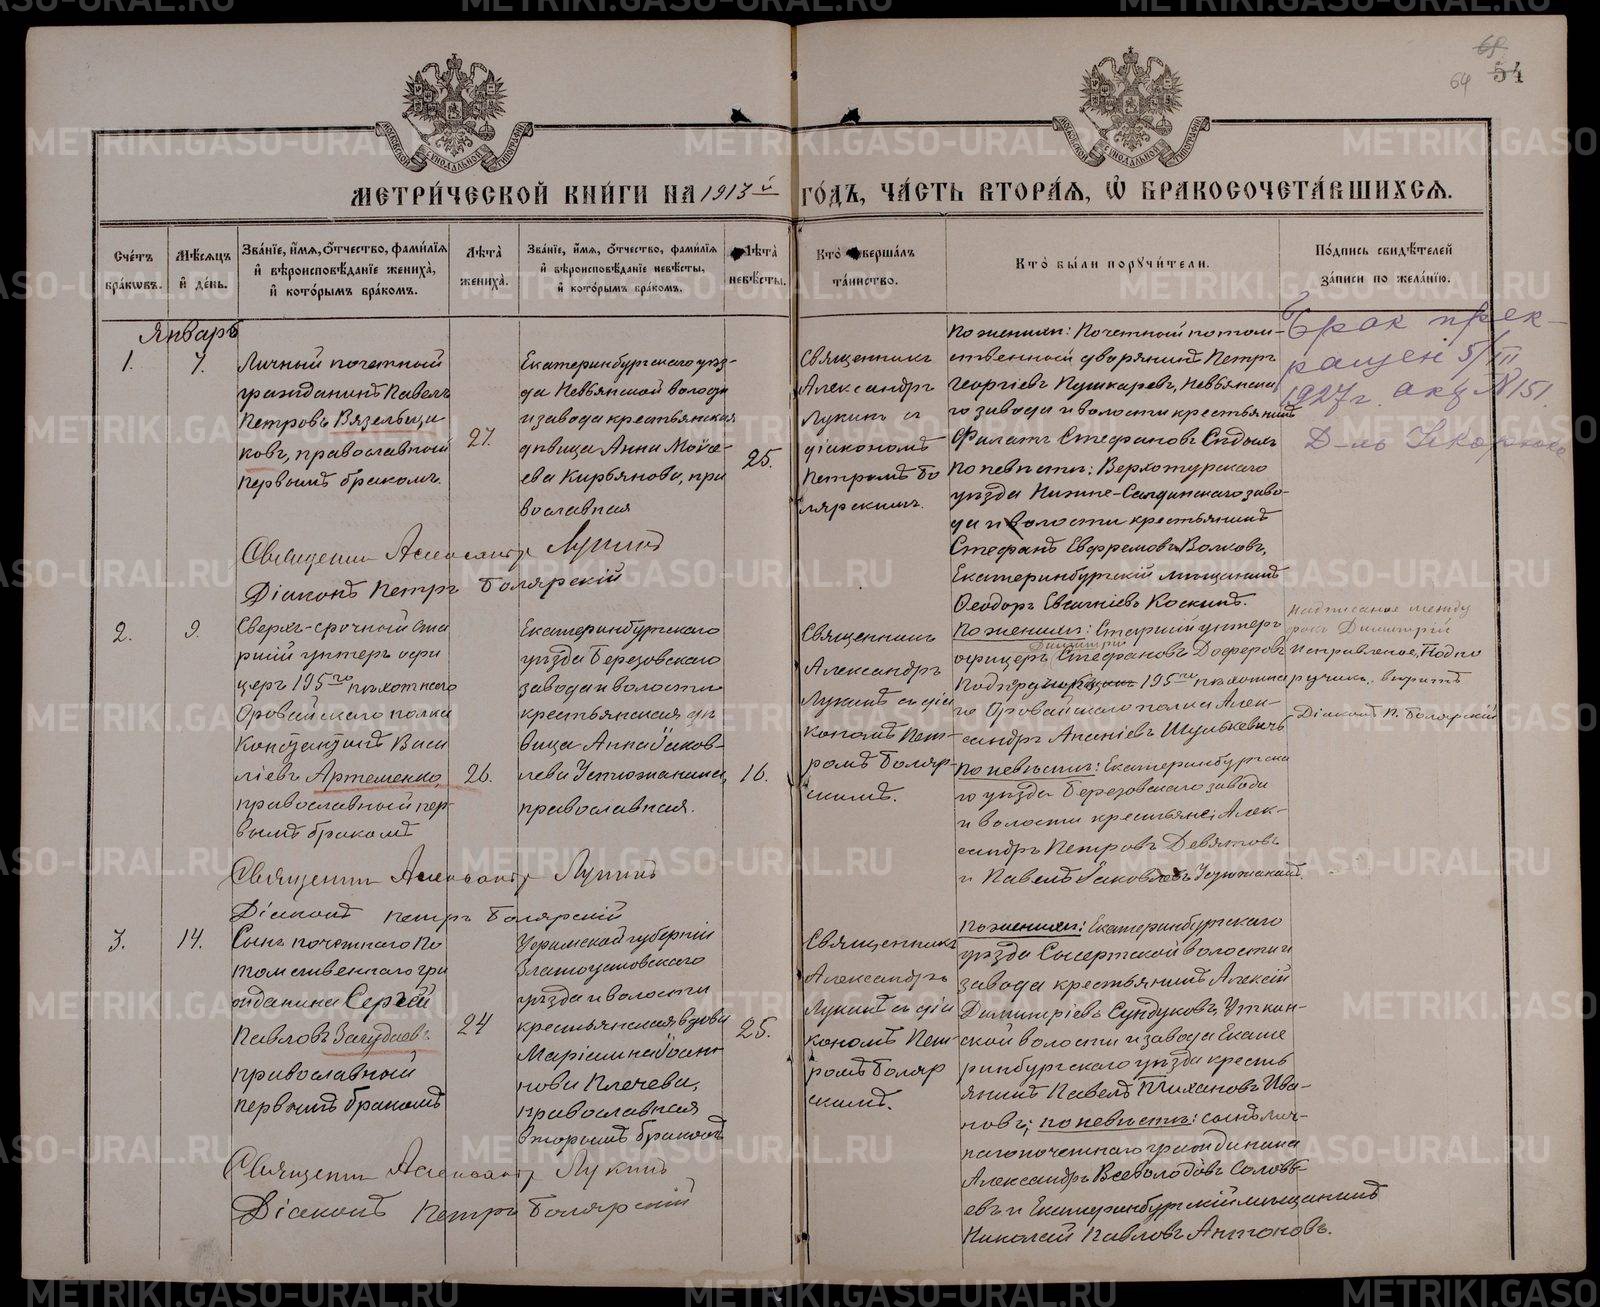 65
64 54
МЕТРИ́ЧЕСКОЙ КНИ́ГИ НА 1913 й ГО́ДЪ, ЧА́СТЬ ВТОРА́Я, Ѡ҆ БРАКОСОЧЕТА́ВШИХСЯ.
Сче́тъ бра́кѡвъ.
Мѣ́сяцъ и҆ де́нь.
Зва́нїе, и҆́мя, ѻ҆́тчество, фами́лїя и҆ вѣроисповѣ́данїе жениха̀, и҆ кото́рымъ бра́комъ.
Лѣ́та жениха̀.
Зва́нїе, и҆́мя, ѻ҆́тчество, фами́лїя и҆ вѣроисповѣ́данїе невѣ́сты, и҆ кото́рымъ бра́комъ.
Лѣ́та невѣ́сты.
Кто̀ соверша́лъ та́инство.
Кто̀ бы́ли порꙋчи́тели.
По́дпись свидѣ́телей за́писи по жела́нїю.
Январь
1.
7.
Личный почетный
гражданинъ Павелъ
Петровъ Вязельщи
ковъ, православный
первымъ бракомъ.
27.
Екатеринбургскаго уѣз-
да Невьянской волости
и завода крестьянская
дѣвица Анна Моисе-
ева Кирьянова, пра
вославная
25.
Священникъ
Александръ
Лукинъ съ
діакономъ
Петромъ Бо
лярскимъ.
По женихѣ: Почетный потом-
ственный дворянинъ Петръ
Георгіевъ Пушкаревъ, Невьянска
го завода и волости крестьянинъ
Филатъ Стефановъ
По невѣстѣ: Верхотурскаго
уѣзда Нижне-Салдинскаго заво-
да и волости крестьянинъ
Стефанъ Евфремовъ Волковъ,
Екатеринбургскій мѣщанинъ
Ѳеодоръ Евгеніевъ Коскинъ.
Брак прек-
ращен 5/III
1927 г. акт № 151.
Священникъ Александръ Лукинъ
Діаконъ Петръ Болярскій
2.
9.
Сверхъ-срочный ста
ршій унтеръ офи
церъ 195го пѣхотнаго
Оровайскаго полка
Константинъ Васи
ліевъ Артеменко,
православный пер-
вымъ бракомъ
26.
Екатеринбургскаго
уѣзда Березовскаго
завода и волости
крестьянская дѣ
вица Анна Іаков-
лева Устюжанина,
православная.
16.
Священникъ
Александръ
Лукинъ съ діа
кономъ Пет-
ромъ Боляр-
скимъ.
По женихѣ: Старшій унтеръ
Димитрій
офицеръ Стефановъ Доферовъ
195го пѣхотна
го Оровайскаго полка Алек-
сандръ Ананіевъ Шулькевичъ
По невѣстѣ: Екатеринбургска
го уѣзда Березовскаго завода
и волости крестьяне; Алек-
сандръ Петровъ Девятовъ
и Павелъ Іаковлевъ Устюжанинъ.
Надписаное между
строкъ Димитрій
исправленое, Подпо
ручикъ, вѣрить
Діаконъ П. Болярскій
Священникъ Александръ Лукинъ
Діаконъ Петръ Болярскій
3.
14.
Сынъ почетнаго По
томственнаго гра
жданина Сергѣй
Павловъ Загудаевъ
православный
первымъ бракомъ
24
Уфимской губерніи
Златоустовскаго
уѣзда и волости
крестьянская вдова
Маріамна Іоан-
нова Плечева,
православная
вторымъ бракомъ
25.
Священникъ
Александръ
Лукинъ съ діа
кономъ Пет-
ромъ Боляр
скимъ.
По женихѣ: Екатеринбургскаго
уѣзда Сысертской волости и
завода крестьянинъ Алексій
Димитріевъ Сундуковъ, Уткин-
ской волости и завода Екате
ринбургскаго уѣзда кресть
янинъ Павелъ Тихановъ Ива-
новъ; по невѣстѣ: сынъ лич-
наго почетнаго гражданина
Александръ Всеволодовъ Соловь-
евъ и Екатеринбургскій мѣщанинъ
Николай Павловъ Антоновъ.
Священникъ Александръ Лукинъ
Діаконъ Петръ Болярскій
METRIKI.GASO-URAL.RU